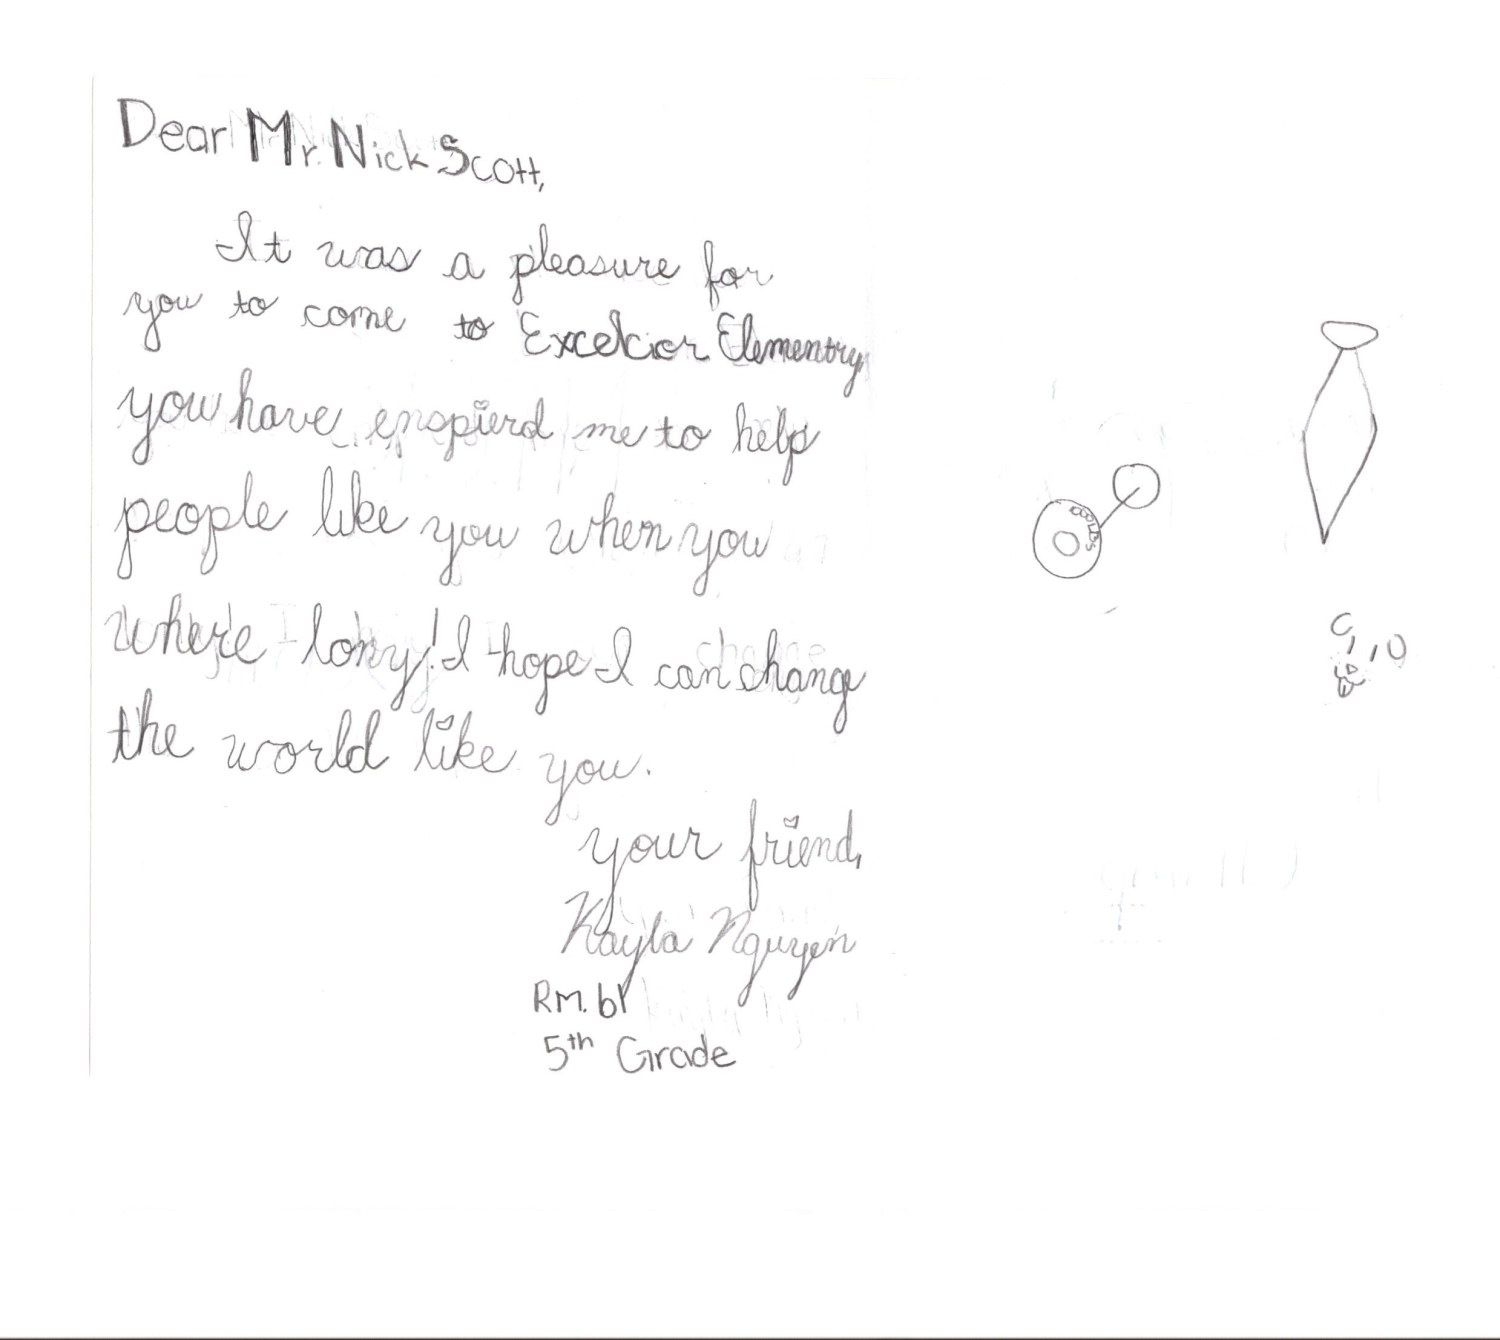 Dear Mr. Nick Scott,
It was a pleasure for
you to come to Excelcior Elementry,
you have enspierd me to help
people like you when you
where lony! I hope I can change
the world like you.
your friend,
Kayla Nguyen
RM. 61
5th Grade